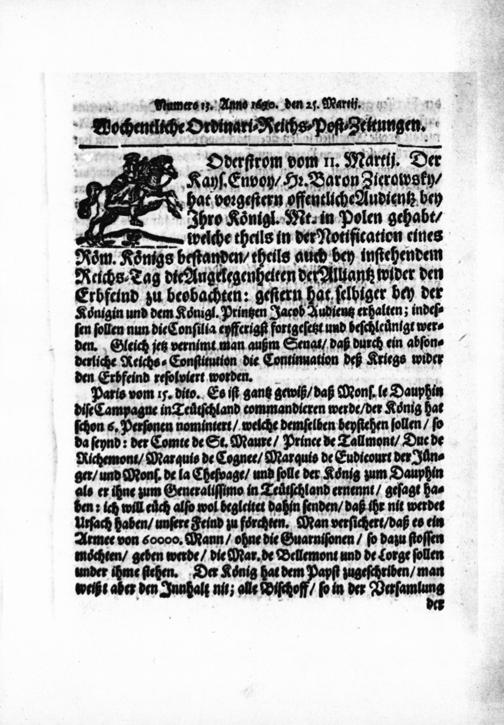 Numero 13. Anno 1690. den 25. Martij.
Wochentliche Ordinari-Reichs-Post-Zeitungen.
Oderstrom vom 11. Martij. Der
Kays. Envoy/ Hr. Baron Zierowsky/
hat vorgestern offentliche Audientz bey
Ihro Königl. Mt. in Polen gehabt/
welche theils in der Notification eines
Röm. Königs bestanden/ theils auch bey instehendem
Reichs-Tag die Angelegenheiten der Alliantz wider den
Erbfeind zu beobachten: gestern hat selbiger bey der
Königin und dem Königl. Printzen Jacob Audientz erhalten; indes-
sen sollen nun die Consilia eyfferigst fortgesetzt und beschleünigt wer-
den. Gleich jetz vernimt man außm Senat/ daß durch ein abson-
derliche Reichs-Constitution die Continuation deß Kriegs wider
den Erbfeind resolviert worden.
Paris vom 15. dito. Es ist gantz gewiß/ daß Mons. le Dauphin
dise Campagne in Teütschland commandieren werde/ der König hat
schon 6. Personen nominiert/ welche demselben beystehen sollen/ so
da seynd: der Comte de St. Maure/ Prince de Tallmont/ Duc de
Richemont/ Marquis de Cognee/ Marquis de Eudicourt der Jün-
ger/ und Mons. de la Chesvage/ und solle der König zum Dauphin
als er ihne zum Generalissimo in Teütschland ernennt/ gesagt ha-
ben: ich will eüch also wol begleitet dahin senden/ daß ihr nit werdet
Ursach haben/ unsere Feind zu förchten. Man versichert/ daß es ein
Armee von 60000. Mann/ ohne die Guarnisonen/ so dazu stossen
möchten/ geben werde/ die Mar. de Bellemont und de Lorge sollen
under ihme stehen. Der König hat dem Papst zugeschriben/ man
weißt aber den Innhalt nit; alle Bischoff/ so in der Versamlung
der